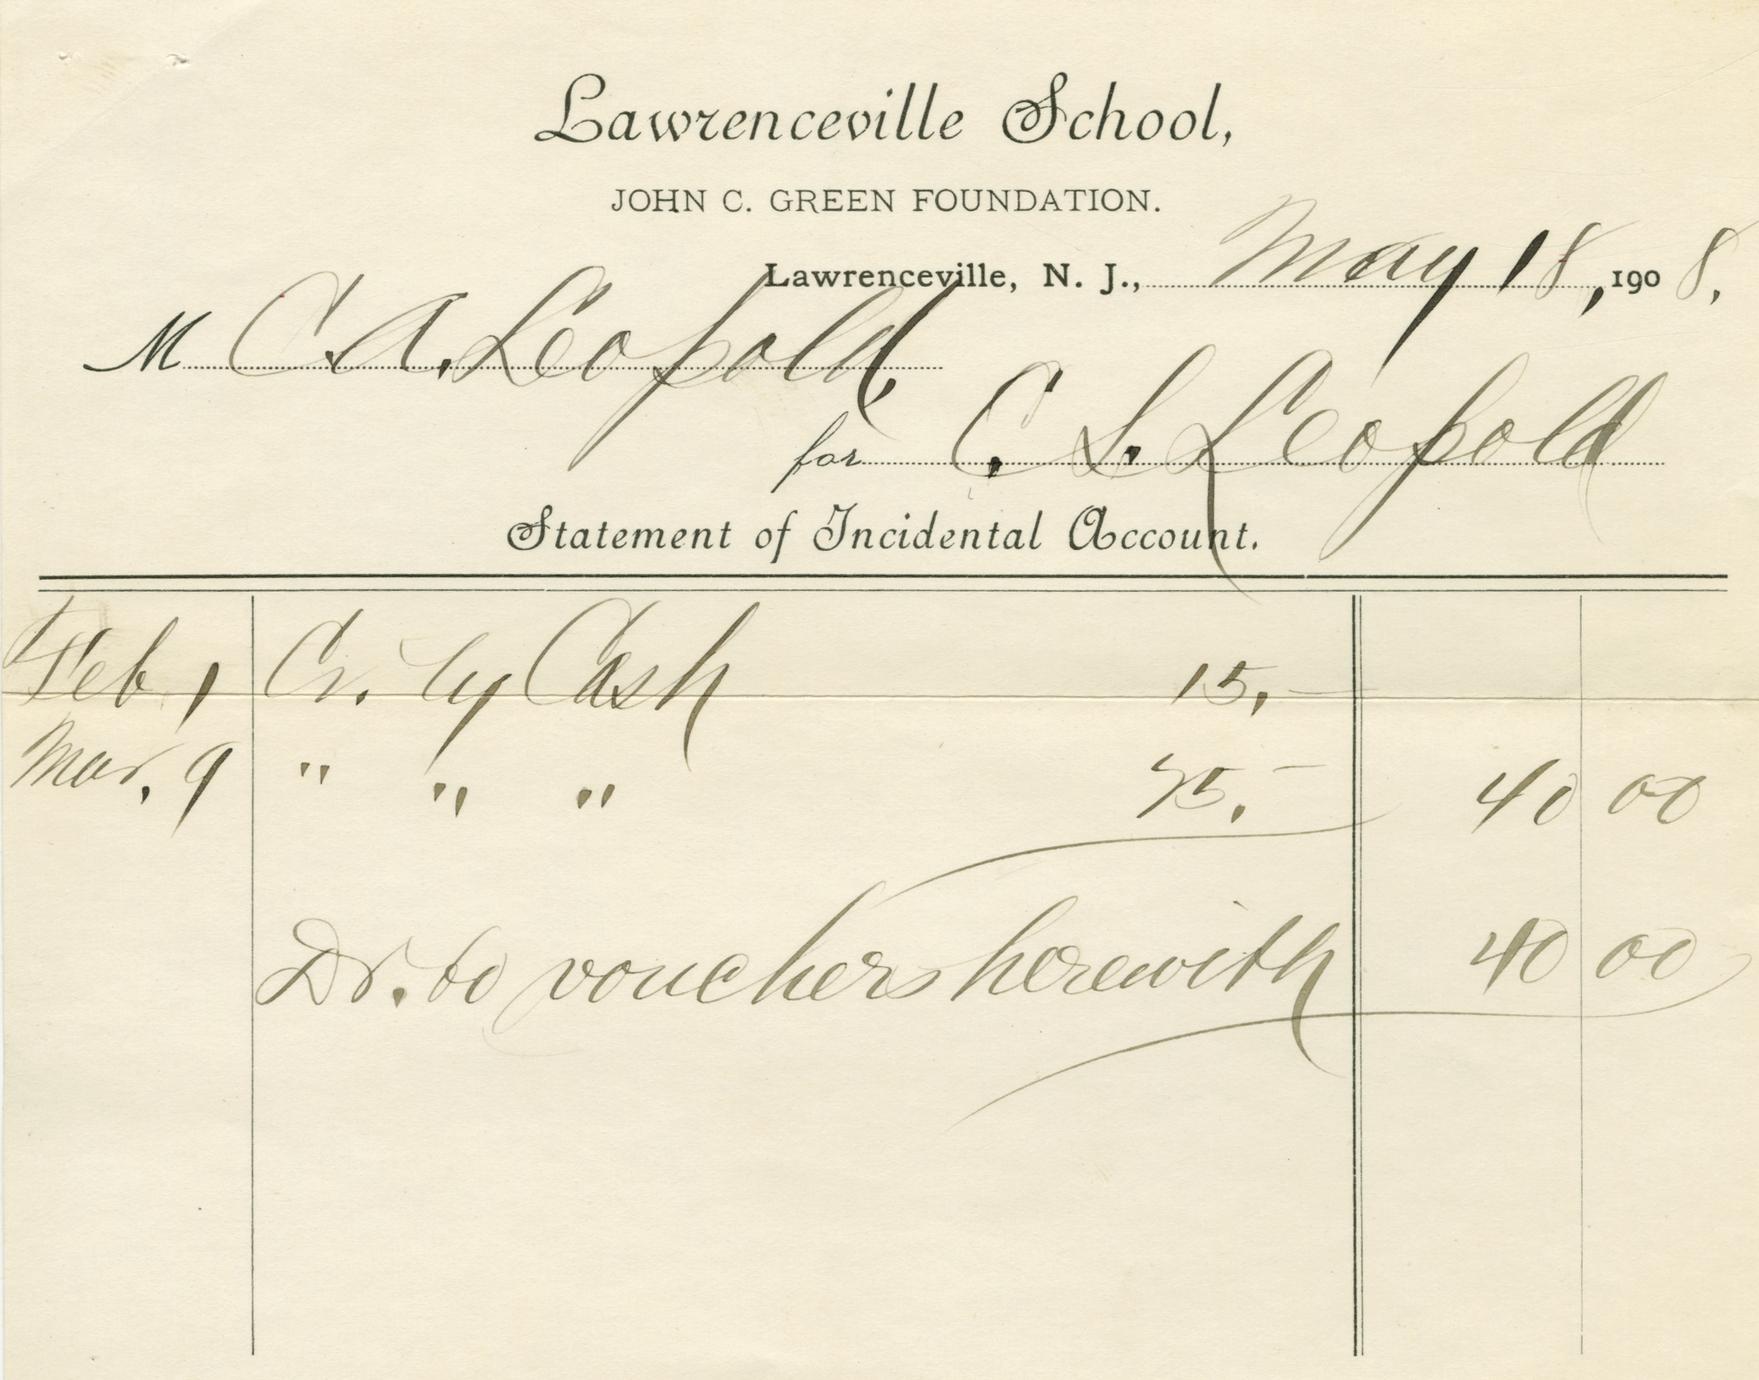 Lawrenceville School,
JOHN C. GREEN FOUNDATION.
Lawrenceville, N. J., May 18, 1908.
M C. A. Leopold,
for C. S. Leopold
Statement of Incidental Account.
Feb 1 Cr. by Cash 15.—
Mar. 9 " " " 25.— 40 00
Dr. to vouchers herewith 40 00